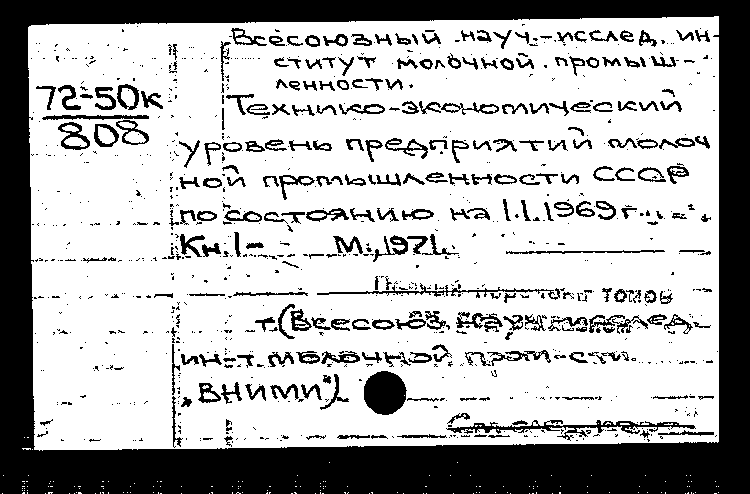 Всесоюзный науч.-исслед. ин-
ститут молочной промыш-
ленности.
72-50к
808
Технико-экономический
уровень предприятий молоч
ной промышленности СССР
по состоянию на 1.1.1969 г.
Кн. 1- М., 1971.
Полный перечень томов
т. (Всесоюз. науч.-исслед.
ин-т молочной пром-сти.
„ВНИМИ").